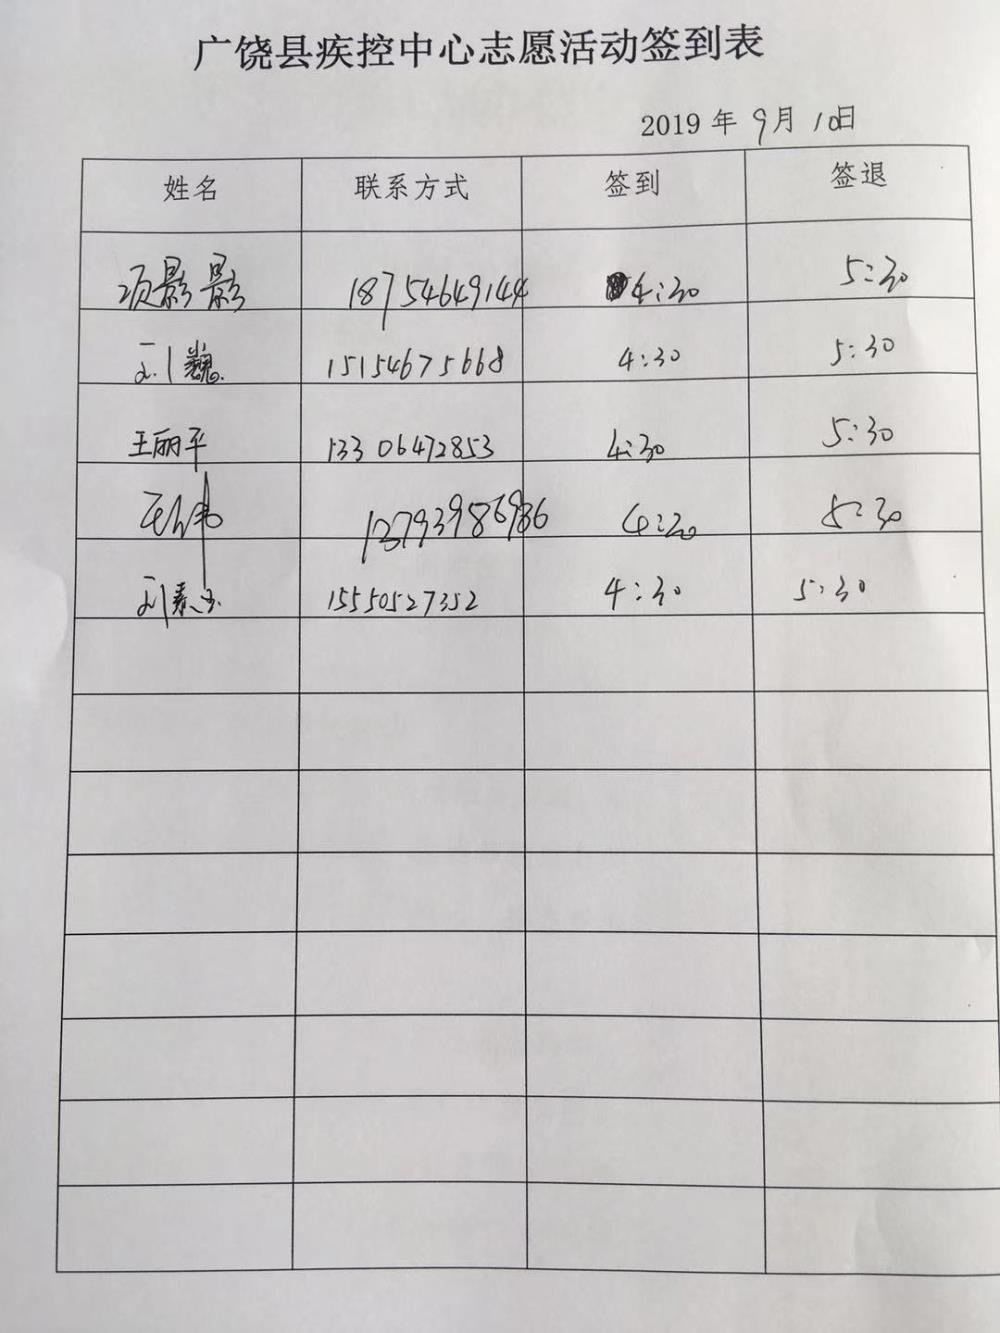 广饶县疾控中心志愿活动签到表
2019 年 9月 10日
姓名 联系方式 签到 签退
项影影 18754649144 4:30 5:30
刘巍 15154675668 4:30 5:30
王丽平 13306472853 4:30 5:30
13793986986 4:30 5:30
刘素玉 15550527352 4:30 5:30